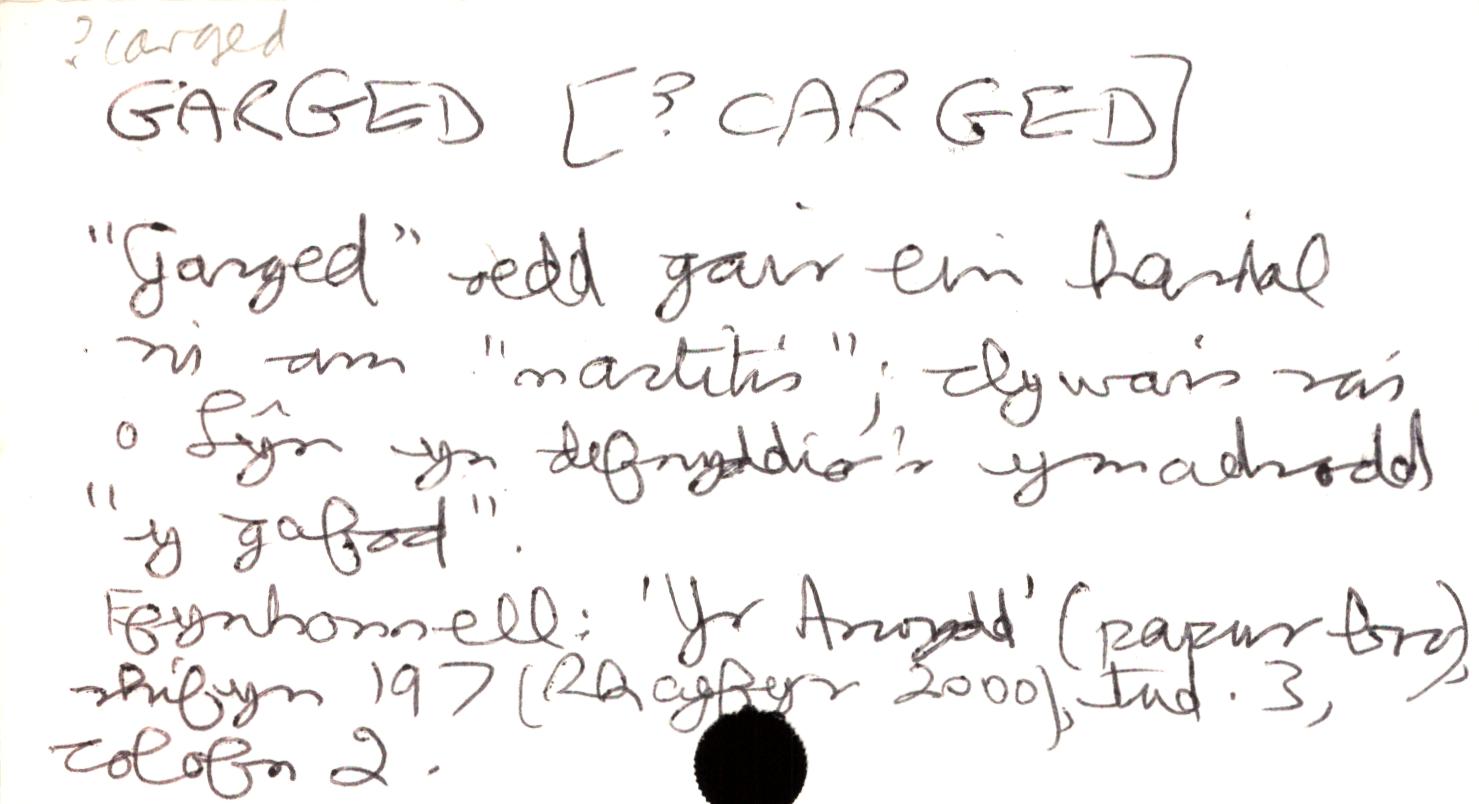 ?carged
GARGED [?CARGED]
"Garged" oedd gair ein hardal
ni am "mastitis"; clywais rai
o Lŷn yn defnyddio'r ymadrodd
"y gafod".
Ffynhonnell: 'Yr Arwydd' (papur bro),
rhifyn 197 (Rhagfyr 2000), tud. 3,
colofn 2.